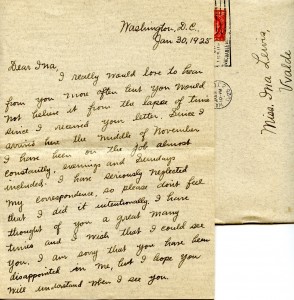 Washington, D.C.
Jan 30, 1925
Dear Ina,
I really would love to hear
from you more often but you would
not believe it from the lapse of time
since I received your letter. Since I
arrived here the middle of November
I have been on the job almost
constantly, evenings and Sundays
included. I have seriously neglected
my correspondence, so please don't feel
that I did it intentionally. I have
thought of you a great many
times and I wish that I could see
you. I am sorry that you have been
disappointed in me, but I hope you
will understand when I see you.
Miss. Ina Lewis,
Uvalde